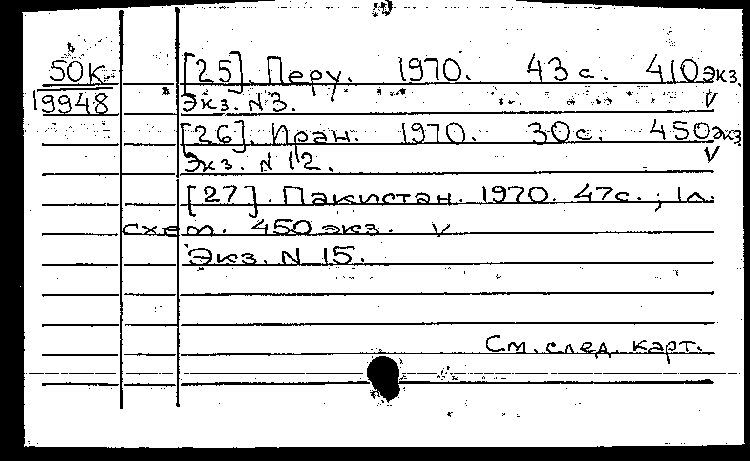 50К [25]. Перу. 1970. 43 с. 410 экз.
19948 Экз. N 3. v
[26]. Иран. 1970. 30 с. 450 экз
Экз. N 12. v
[27]. Пакистан. 1970. 47 с.; 1 л.
схем. 450 экз. v
Экз. N 15.
См. след. карт.